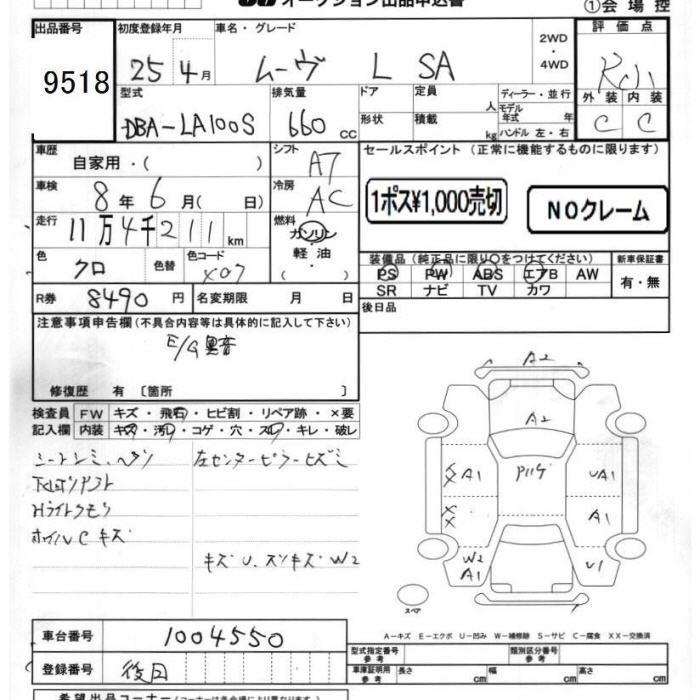 オークション出品申込書
①会場控
出品番号
9518
初度登録年月 車名・グレード
25年4月 ムーヴ L SA
2WD
・
4WD
評価点
外装 内装
C C
型式 排気量 ドア 定員 ディーラー・並行
DBA-LA100S 660cc 形状 積載 人 kg モデル年式 年式 ハンドル 左・右
車歴 自家用・( )
シフト AT
車検 8年6月( 日)
冷房 AC
走行 11万4千211km
燃料 ガソリン・軽油・( )
色 クロ 色替 色コード X07
R券 8490円 名変期限 月 日
セールスポイント(正常に機能するものに限ります)
1ポス¥1,000売切
NOクレーム
装備品(純正品に限り○をつけてください) 新車保証書
PS PW ABS エアB AW 有・無
SR ナビ TV カワ
後日品
注意事項申告欄(不具合内容等は具体的に記入して下さい)
E/G異音
修復歴 有〔箇所 〕
検査員記入欄 FW キズ・飛石・ヒビ割・リペア跡・×要
内装 キズ・汚レ・コゲ・穴・スレ・キレ・破レ
左センターピラーヒズミ
Hライトクモリ
ホイルC キズ
キズ U.スリキズ W2
A2
A2
XX A1 UA1
XX A1
W2
A1 U1
スペア
A－キズ E－エクボ U－凹み W－補修跡 S－サビ C－腐食 XX－交換済
車台番号 1004550
登録番号 後日
型式指定番号 参考 類別区分番号 参考
車庫証明用 参考 長さ cm 幅 cm 高さ cm
希望出品コーナー(コーナーは各会場により異なります)